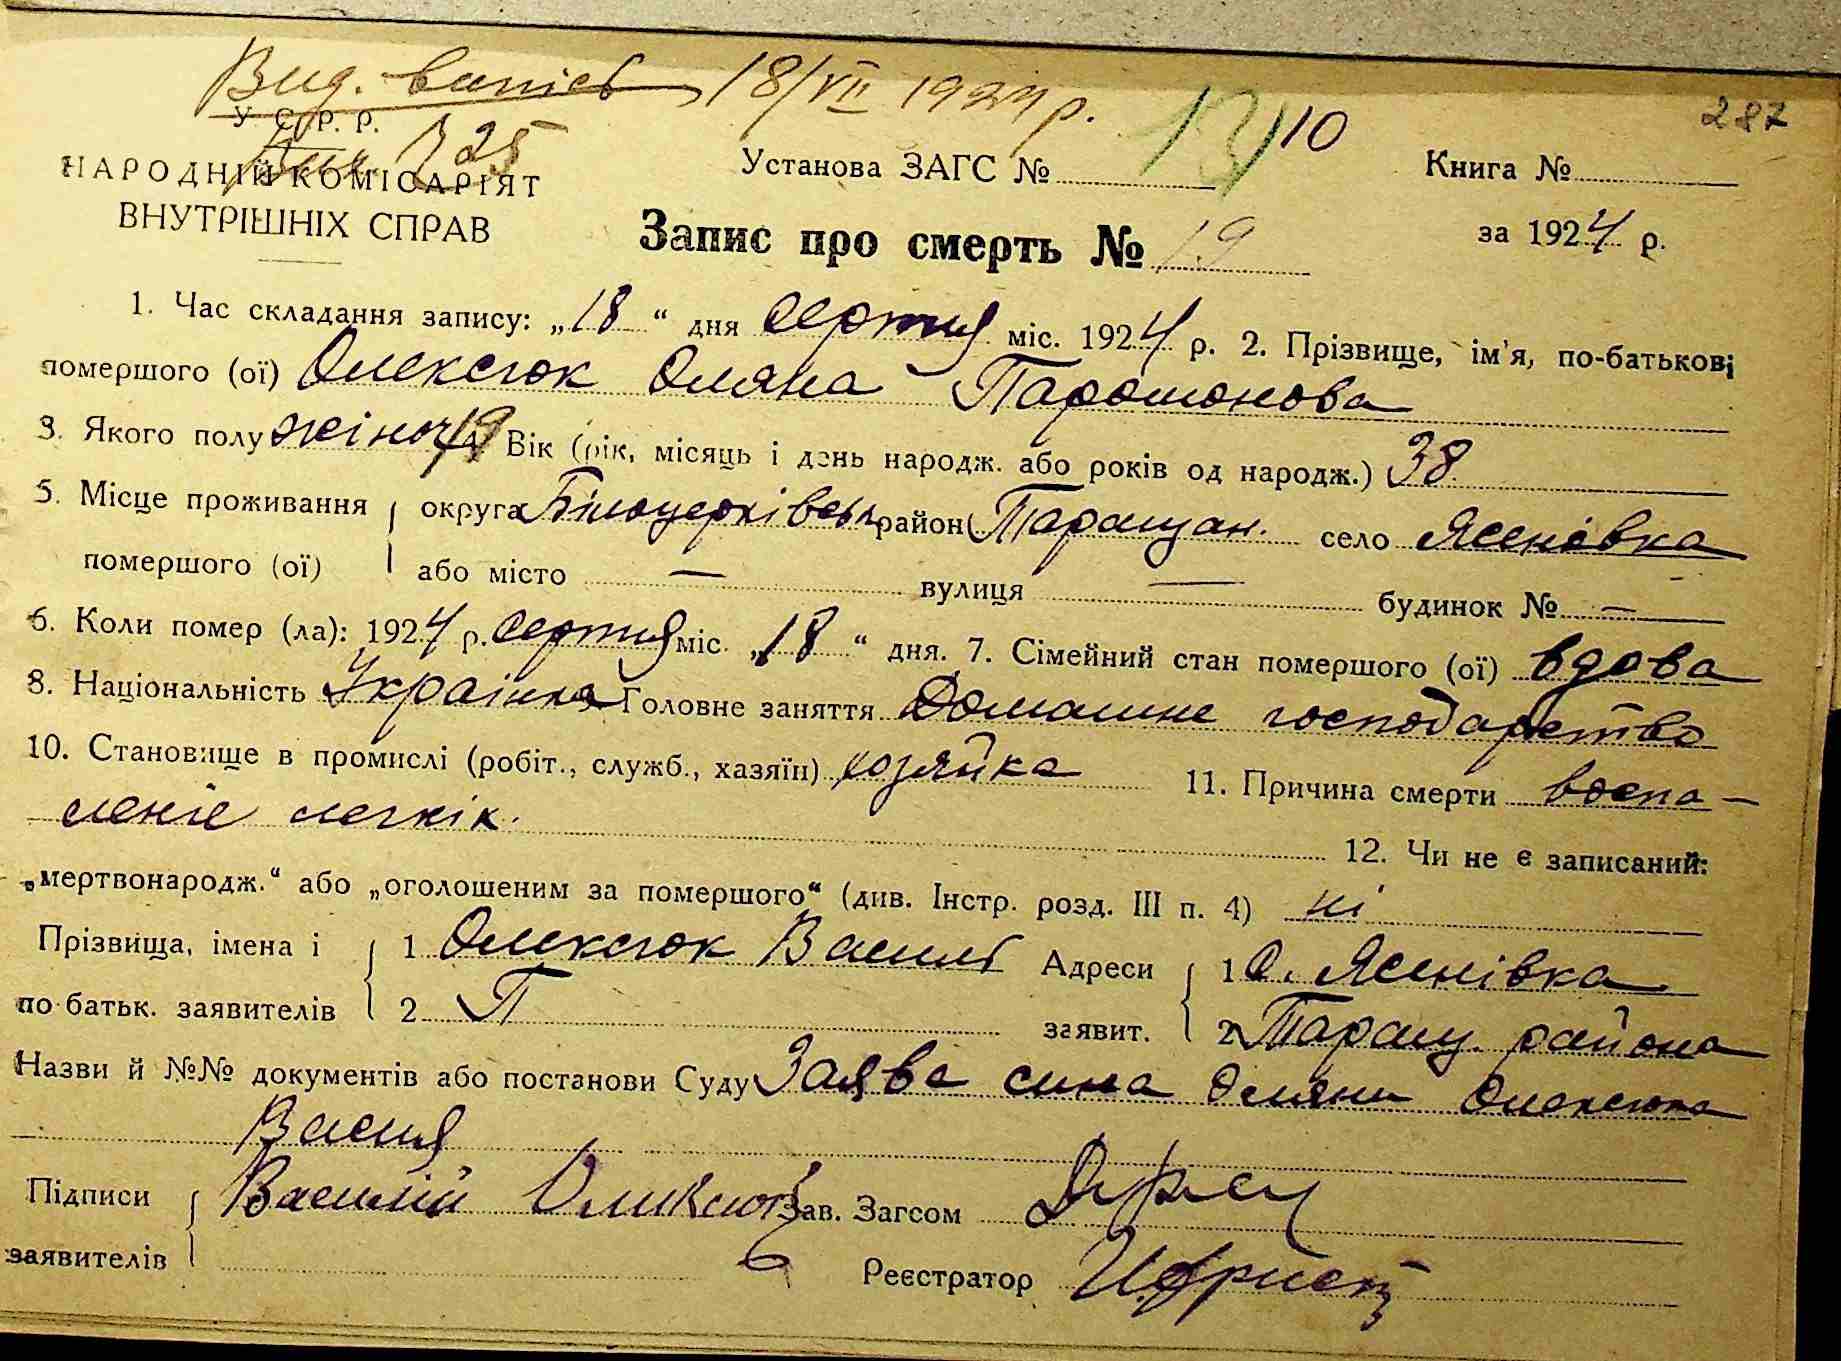 Вид. випісь 18/VII 1924 р.
287
У. С. Р. Р.
325
13/10
НАРОДНІЙ КОМІСАРІЯТ
ВНУТРІШНІХ СПРАВ
Установа ЗАГС №
Книга №
Запис про смерть № 19
за 1924 р.
1. Час складання запису: „18“ дня серпня міс. 1924 р. 2. Прізвище, ім'я, по-батькові
помершого (ої) Олексюк Оляна Парамонова
3. Якого полу жіноч. 4. Вік (рік, місяць і день народж. або років од народж.) 38
5. Місце проживання округа Білоцерківськ район Таращан. село Ясенівка
помершого (ої) або місто — вулиця — будинок № —
6. Коли помер (ла): 1924 р. серпня міс. „18“ дня. 7. Сімейний стан помершого (ої) вдова
8. Національність Українка Головне заняття Домашнє господарство
10. Становище в промислі (робіт., служб., хазяїн) хозяйка 11. Причина смерти воспа-
леніе легкік.
12. Чи не є записаний:
„мертвонародж.“ або „оголошеним за помершого“ (див. Інстр. розд. III п. 4) ні
Прізвища, імена і 1 Олексюк Василь Адреси 1 С. Ясенівка
по батьк. заявителів 2 П заявит. 2 Таращ. района
Назви й №№ документів або постанови Суду Заява сина Оляни Олексюка
Василя
Підписи Василій Оликсюк Зав. Загсом
заявителів Реєстратор